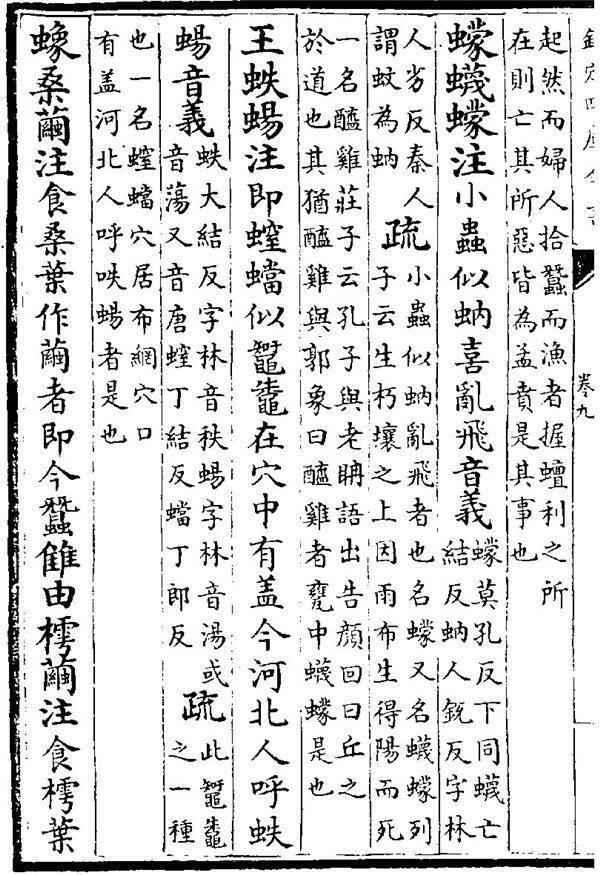 卷九
起然而婦人拾蠶而漁者握鱣利之所
在則亡其所惡皆為孟賁是其事也
蠓蠛蠓注小蟲似蚋喜亂飛音義
蠓莫孔反下同蠛亡
結反蚋人銳反字林
人劣反秦人
謂蚊為蚋
疏
小蟲似蚋亂飛者也名蠓又名蠛蠓列
子云生朽壤之上因雨布生得陽而死
一名醯雞莊子云孔子與老聃語出告顏回曰丘之
於道也其猶醯雞與郭象曰醯雞者甕中蠛蠓是也
王蛈蝪注即螲蟷似鼅鼄在穴中有盖今河北人呼蛈
蝪音義
蛈大結反字林音秩蝪字林音湯或
音蕩又音唐螲丁結反蟷丁郎反
疏
此鼅鼄
之一種
也一名螲蟷穴居布網穴口
有盖河北人呼蛈蝪者是也
蟓桑繭注食桑葉作繭者即今蠶雔由樗繭注食樗葉